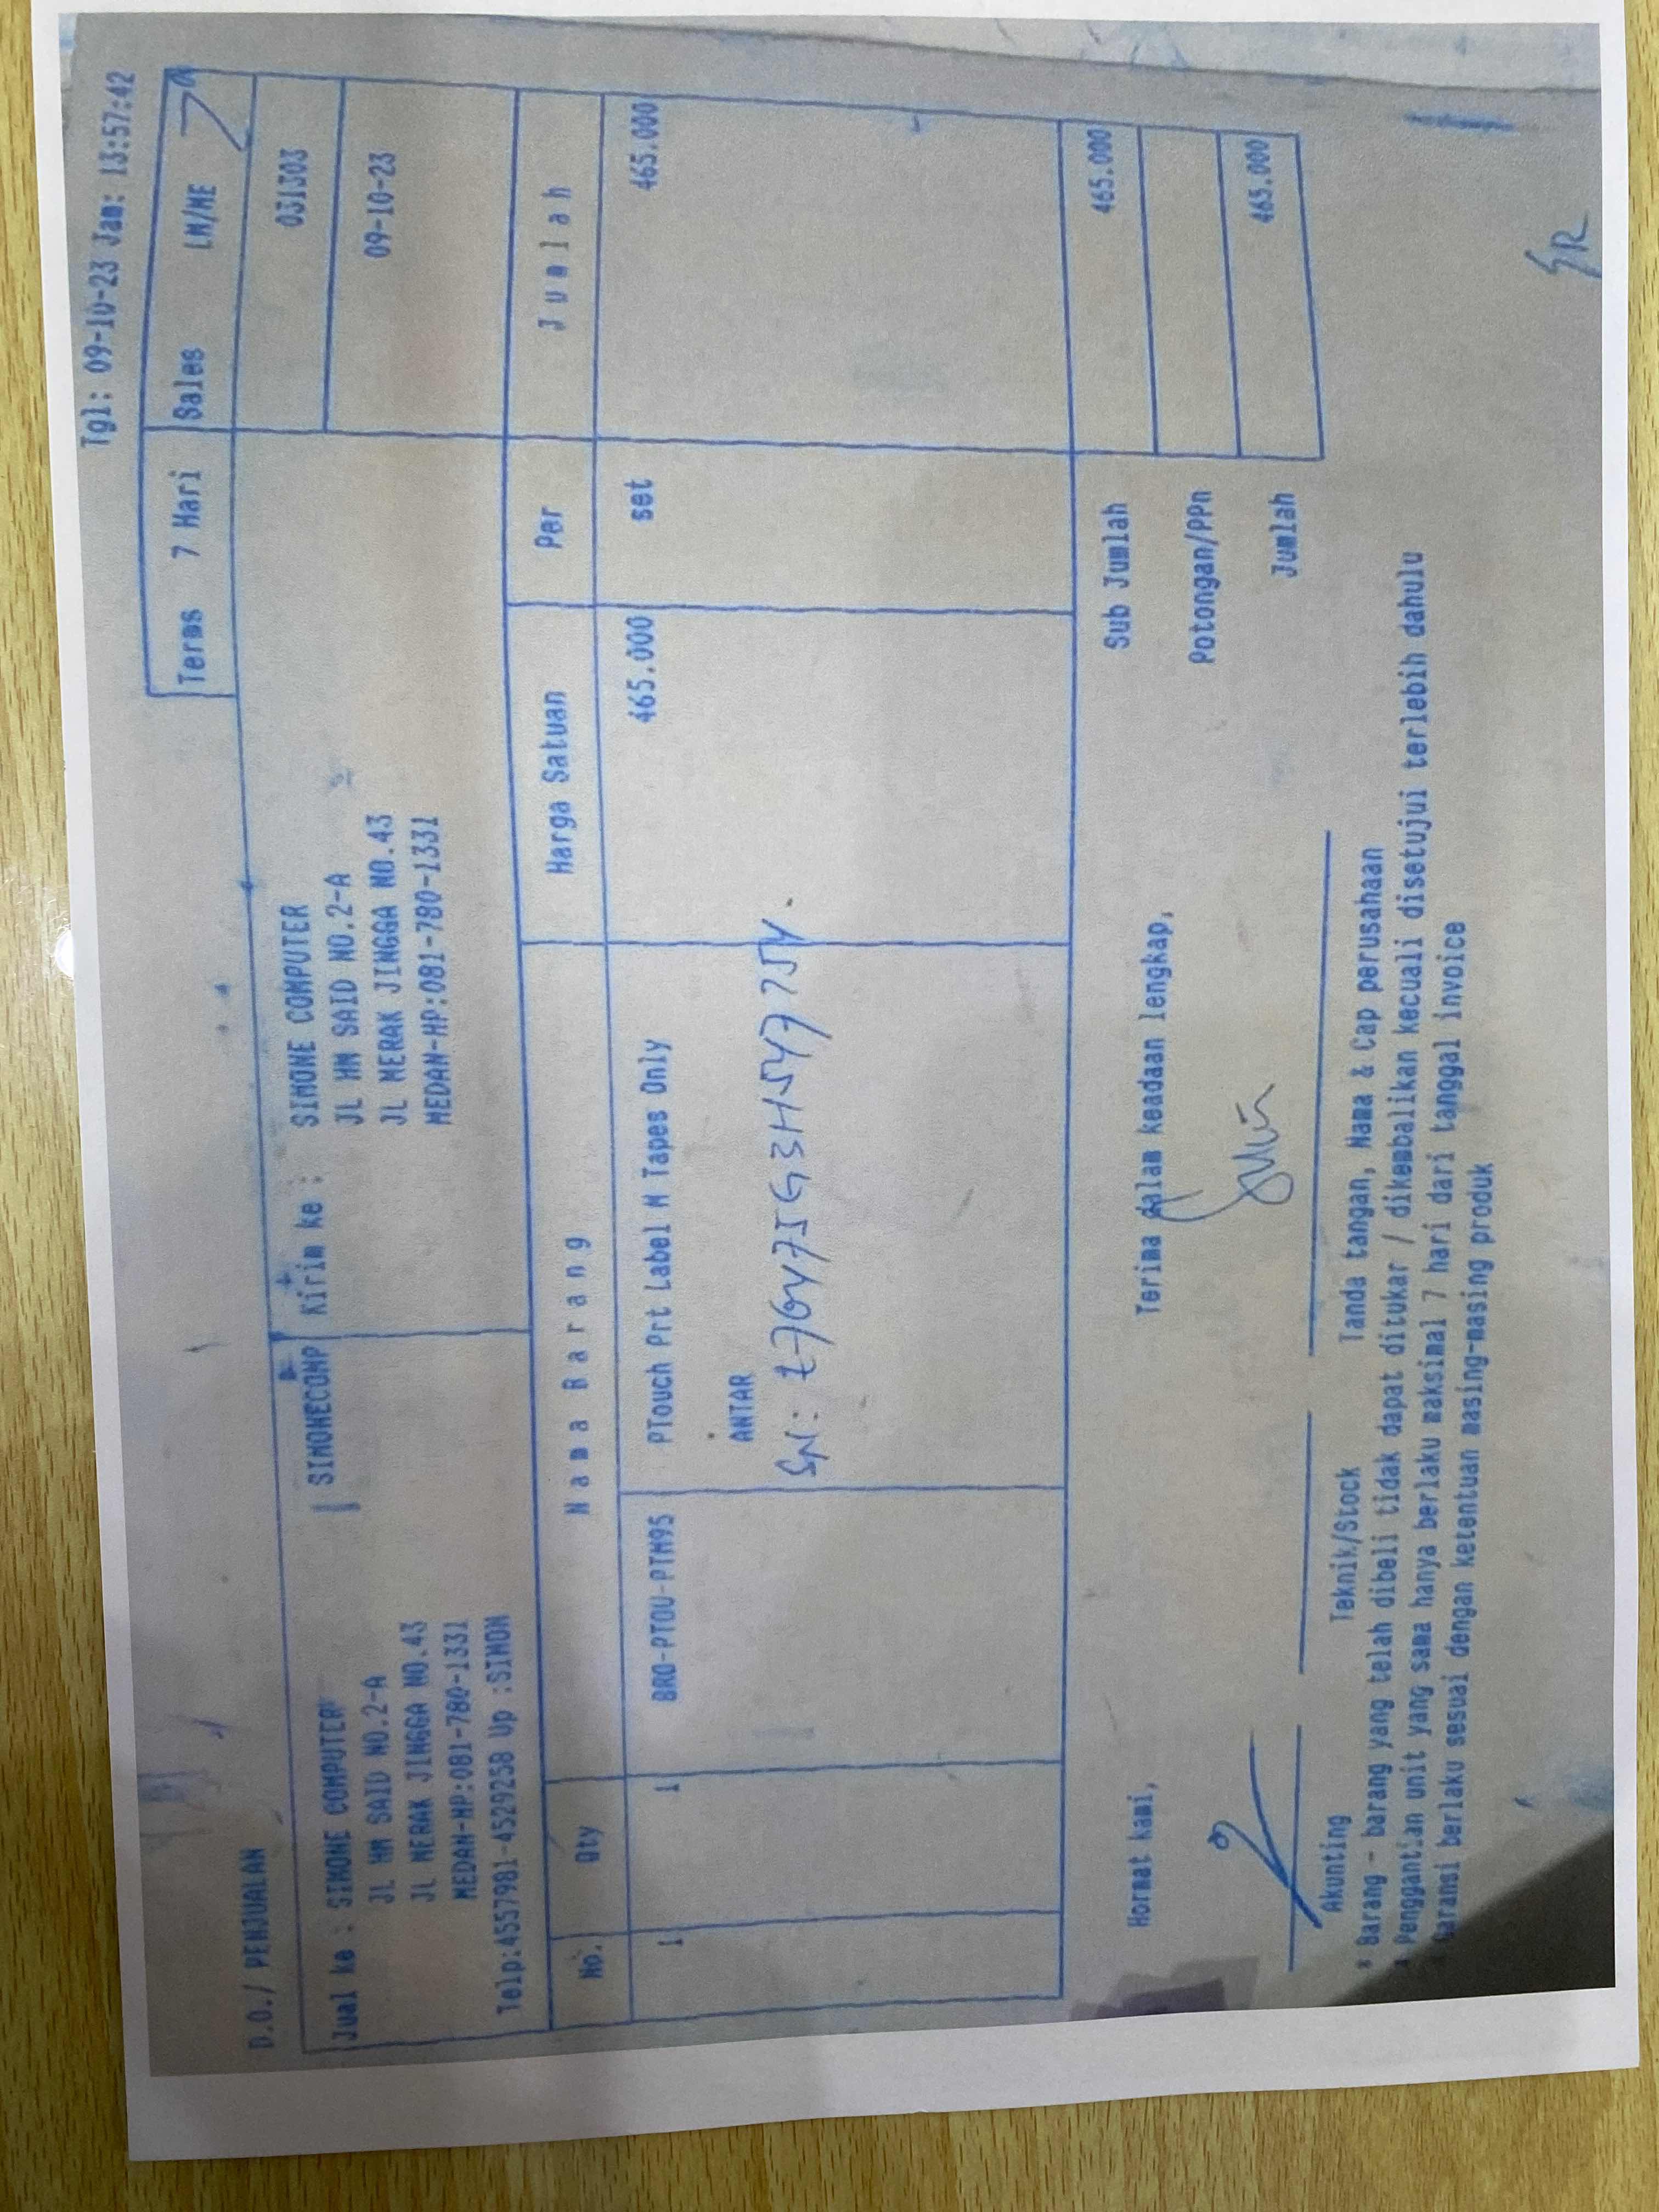 Tgl: 09-10-23 Jam: 13:57:42
Terms 7 Hari Sales LM/ME
D.O./ PENJUALAN 031303
Jual ke : SIMONE COMPUTER SIMONECOMP Kirim ke : SIMONE COMPUTER 09-10-23
JL HM SAID NO.2-A JL HM SAID NO.2-A
JL MERAK JINGGA NO.43 JL MERAK JINGGA NO.43
MEDAN-HP:081-780-1331 MEDAN-HP:081-780-1331
Telp:4557981-4529258 Up :SIMON
No. Qty Nama Barang Harga Satuan Per Jumlah
1 1 BRO-PTOU-PTM95 PTouch Prt Label M Tapes Only 465.000 set 465.000
ANTAR
SN:
Sub Jumlah 465.000
Hormat kami, Terima dalam keadaan lengkap,
Potongan/PPn
Jumlah 465.000
Akunting Teknik/Stock Tanda tangan, Nama & Cap perusahaan
* Barang - barang yang telah dibeli tidak dapat ditukar / dikembalikan kecuali disetujui terlebih dahulu
* Penggantian unit yang sama hanya berlaku maksimal 7 hari dari tanggal invoice
* Garansi berlaku sesuai dengan ketentuan masing-masing produk
SR